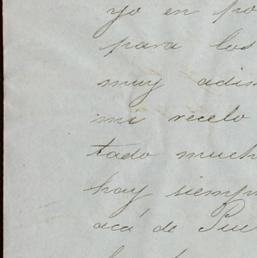 yo en po
para los
muy adi
mi recelo
tado much
hay siempr
acá de Pue